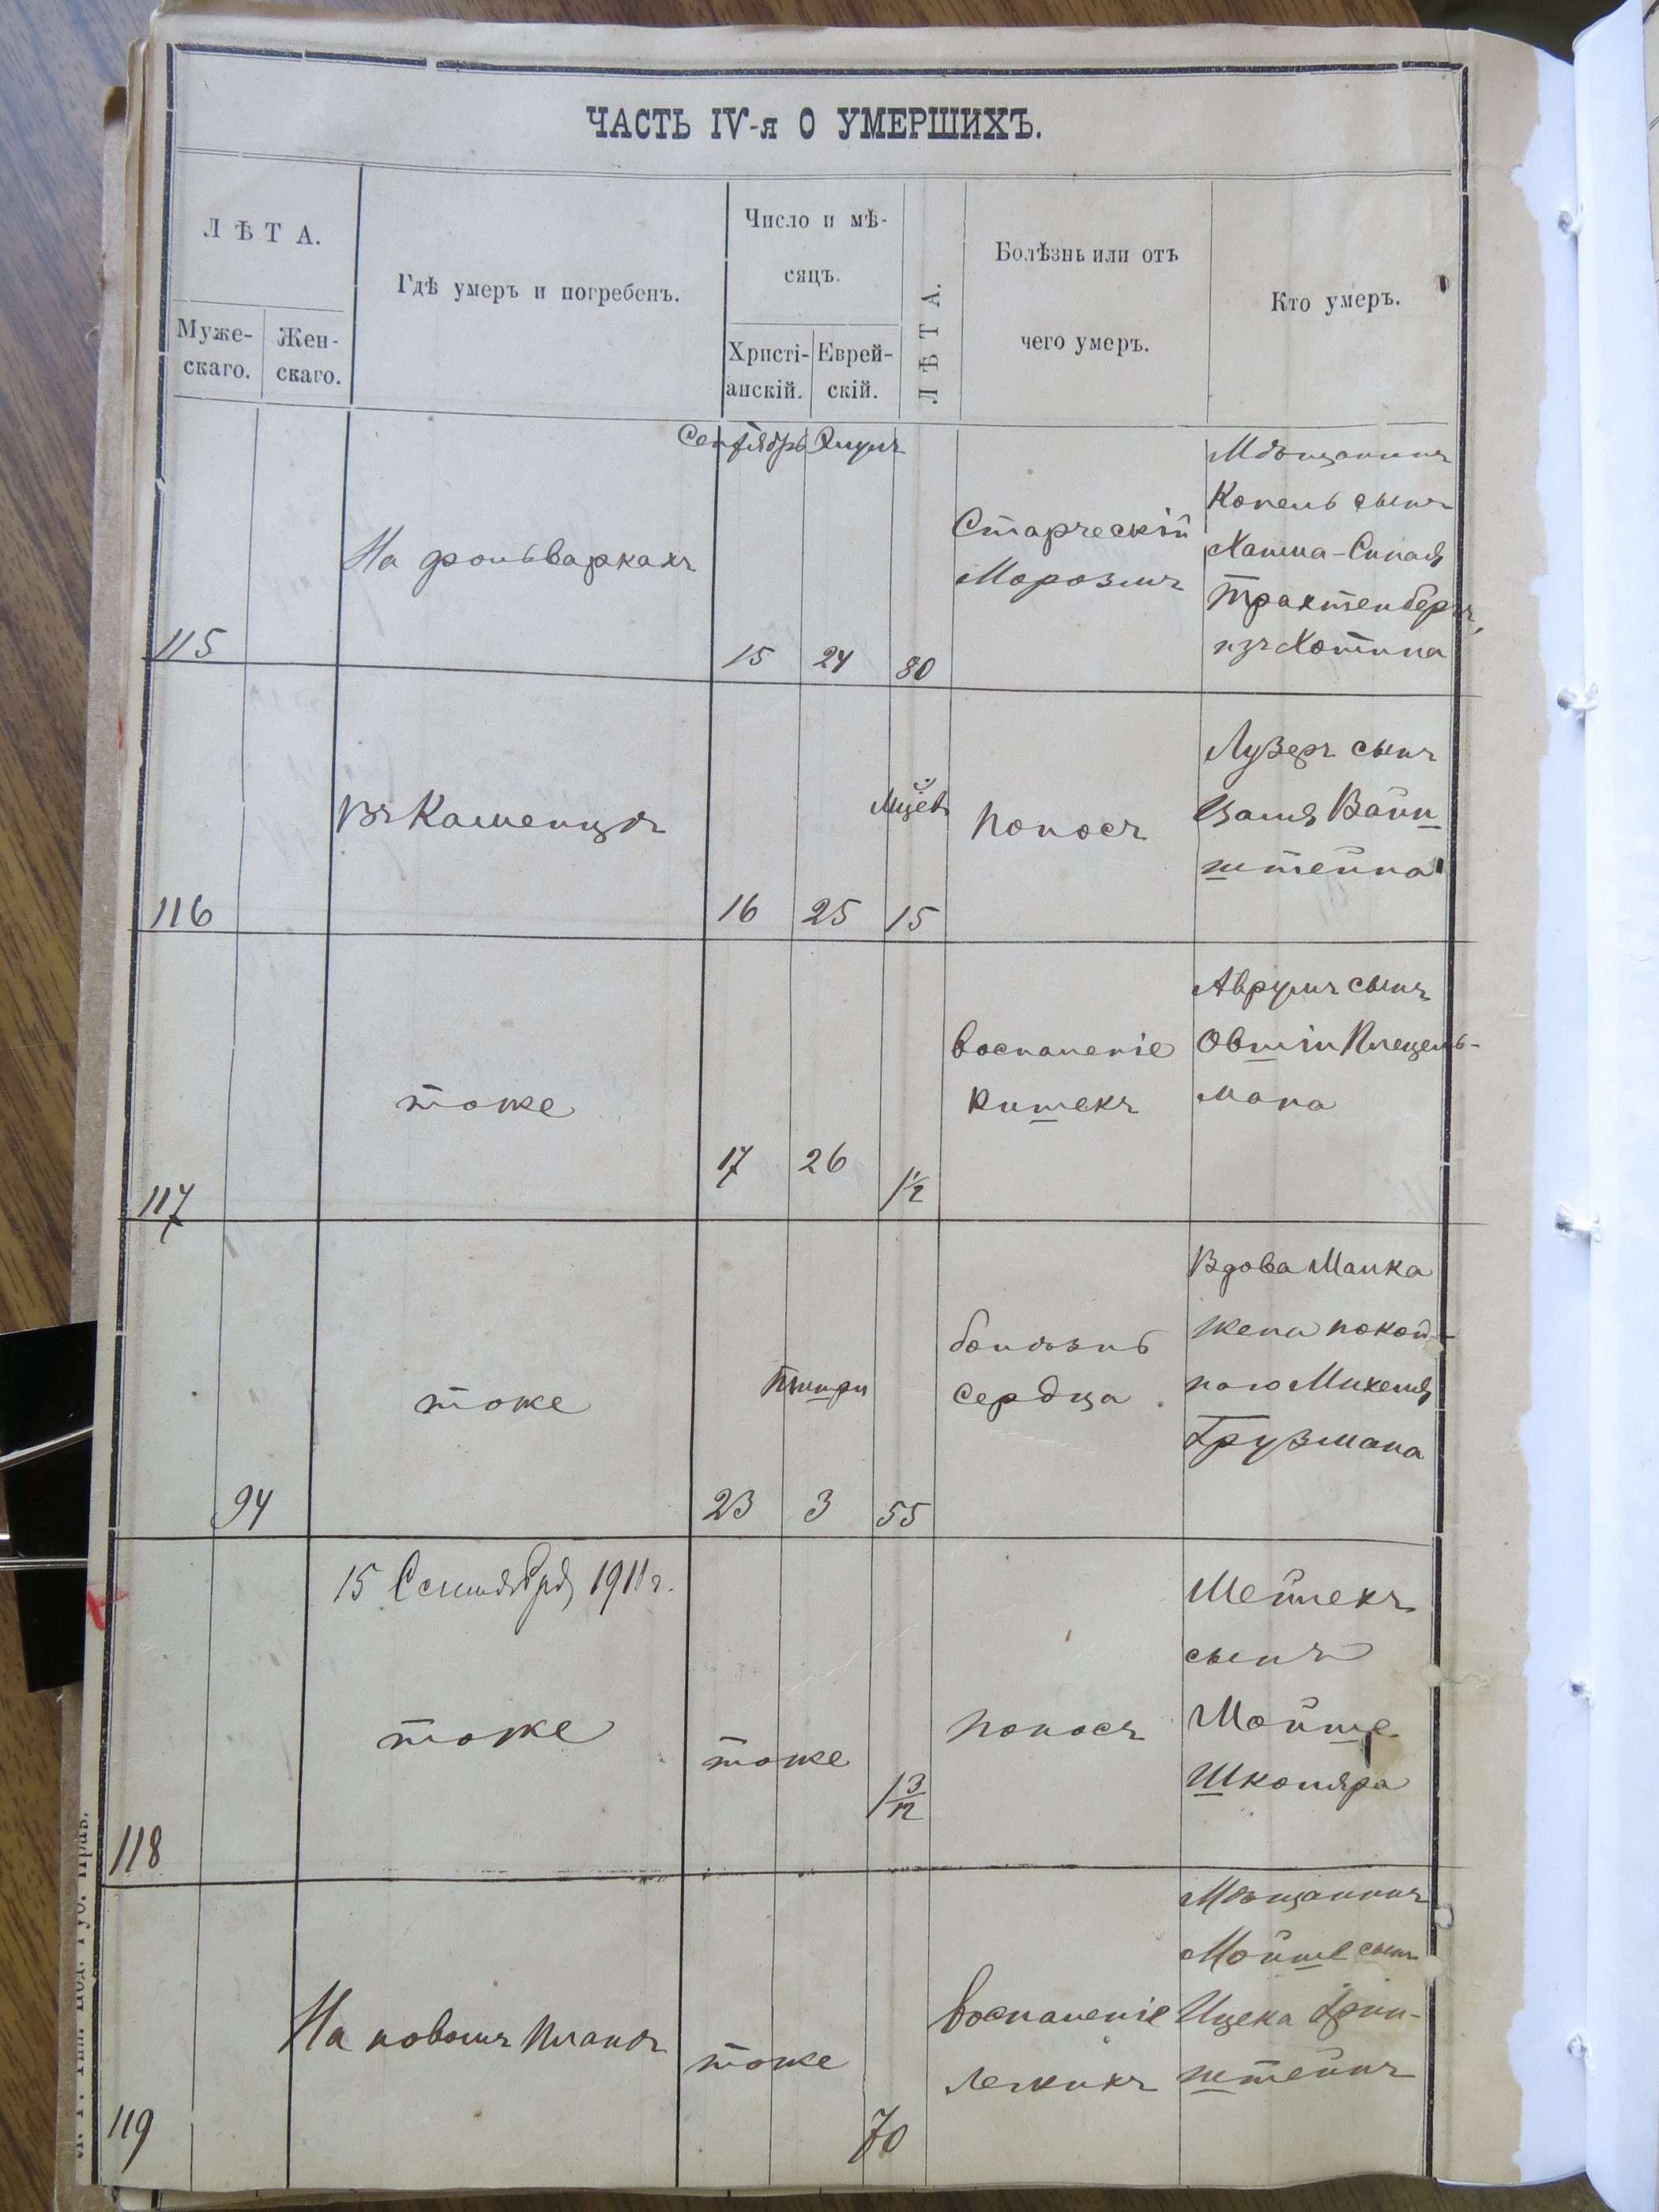 ЧАСТЬ IV-я О УМЕРШИХЪ.
ЛѢТА.
Муже-
скаго.
Жен-
скаго.
Гдѣ умеръ и погребенъ.
Число и мѣ-
сяцъ.
Христі-
анскій.
Еврей-
скій.
ЛѢТА.
Болѣзнь или отъ
чего умеръ.
Кто умеръ.
115
На фольваркахъ
Сентябрь
15
24
80
Старческій
Морозмъ
Мѣщанинъ
Копель сынъ
Хаима-Сипая
Трактенберъ,
изъ Хотина
116
въ Каменцѣ
16
25
Мцев
15
поносъ
Лузеръ сынъ
Цаля Вайн
штейна
117
тоже
17
26
1½
воспаленіе
кишекъ
Аврумъ сынъ
Овшіи Плецель-
мана
94
тоже
23
Тишри
3
55
болѣзнь
сердца
Вдова Малка
жена покой-
наго Михеля
Грузмана
118
15 Сентября 1911 г.
тоже
тоже
1 3/12
поносъ
Мейлехъ
сынъ
Мойше
Школяра
119
На новомъ планѣ
тоже
70
воспаленіе
легкихъ
Мѣщанинъ
Мойше сынъ
Ицека Грин-
штейнъ